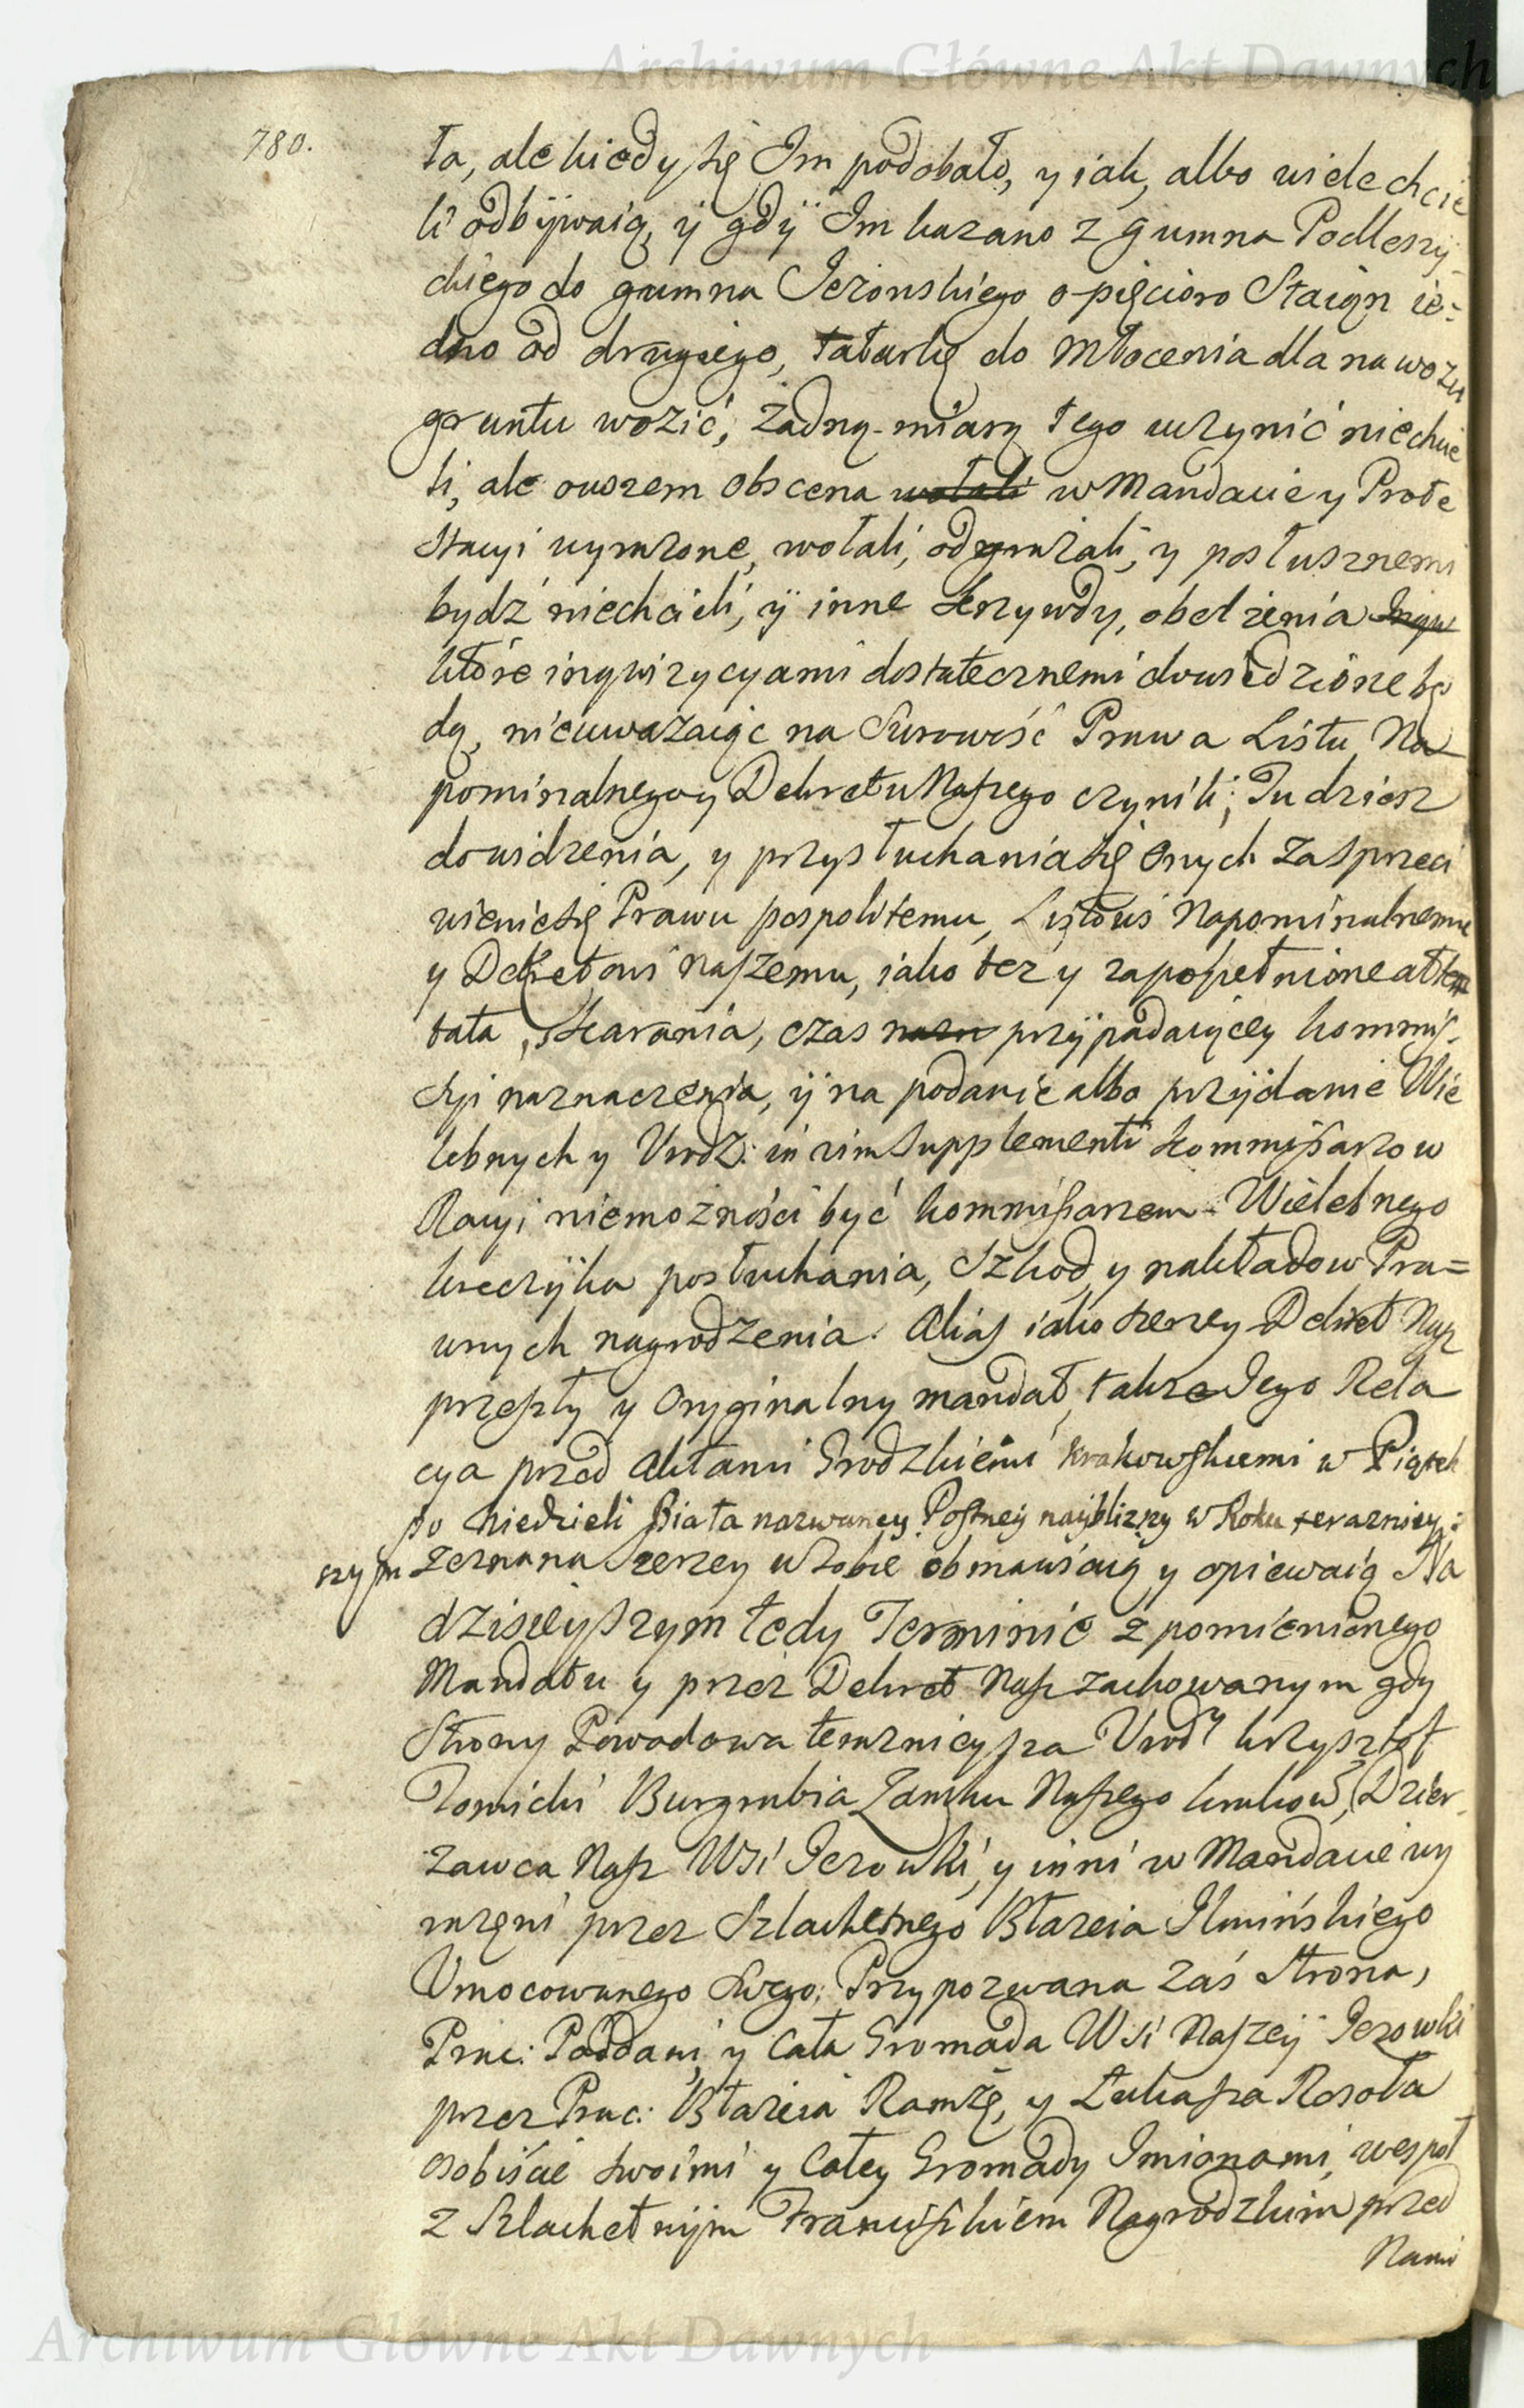 Archiwum Główne Akt Dawnych
780.
ta, ale kiedy się Im podobało, y iak, albo wiele chcie
li odbÿwaią, ÿ gdÿ Im kazano z gumna Podlesÿ-
ckiego do gumna Jezowskiego o pięcioro Staięn ie=
dno od drugiego, tatarkę do młocenia dla nawozu
gruntu wozić, żadną miarą tego uczynić niechcie
li, ale owszem obscena wołali w Mandacie y Prote
stacyi wyrażone, wołali, odgrażali, y posłusznemi
bydź niechcieli, ÿ inne krzywdy, obelżenia
które inqwizycyami dostatecznemi dowiedzióne bę
dą, nieuważaiąc na Surowość Prawa Listu Na
pominalnego y Dekretu Naszego czynili; Tudziesz
do widzenia, y przysłuchania się onych za sprzeci
wienie się Prawu pospolitemu, Listowi Napominalnemu
y Dekretowi naszemu, iako tez y za popełnione atten
tata, skarania, czas przÿpadaiącey kommis-
syi naznaczenia, ÿ na podanie albo przÿdanie Wie
lebnych y Urodz: in vim supplementi kommissarzow
Racyi niemożności być kommissarzem Wielebnego
kreczÿka posłuchania, Szkod y nakładow Pra=
wnych nagrodzenia. Alias iako szerzey Dekret Nasz
przeszły y Oryginalny mandat, takze Jego Rela
cya przed Aktami Grodzkiemi krakowskiemi w Piątek
po Niedzieli Biała nazwaney Postneÿ naÿbliższy w Roku teraznieÿ=
szym zeznana szerzey w sobie obmawiaią y opiewaią Na
dzisieyszym tedy Terminie z pomienionego
Mandatu y przez Dekret Nasz zachowanym gdy
Strony Powodowa temznieysza Urodz. krzysztof
Tomicki Burgrabia Zamku Naszego krakow, Dzier-
zawca Nasz Wsi Jezowki, y inni w Mandacie wy
rażeni przez Szlachetnego Błazeia Ilmińskiego
Umocowanego swego; Przypozwana zaś strona,
Prac: Poddani y cała Gromada Wsi Naszeÿ Jezowki
przez Prac: Błazeia Ramżę, y Łukasza Rosoła
osobiście swoimi y całey Gromady Imionami, wespoł
z Szlachetnÿm Franciszkiem Nagrodzkim przed
Nami
Archiwum Główne Akt Dawnych